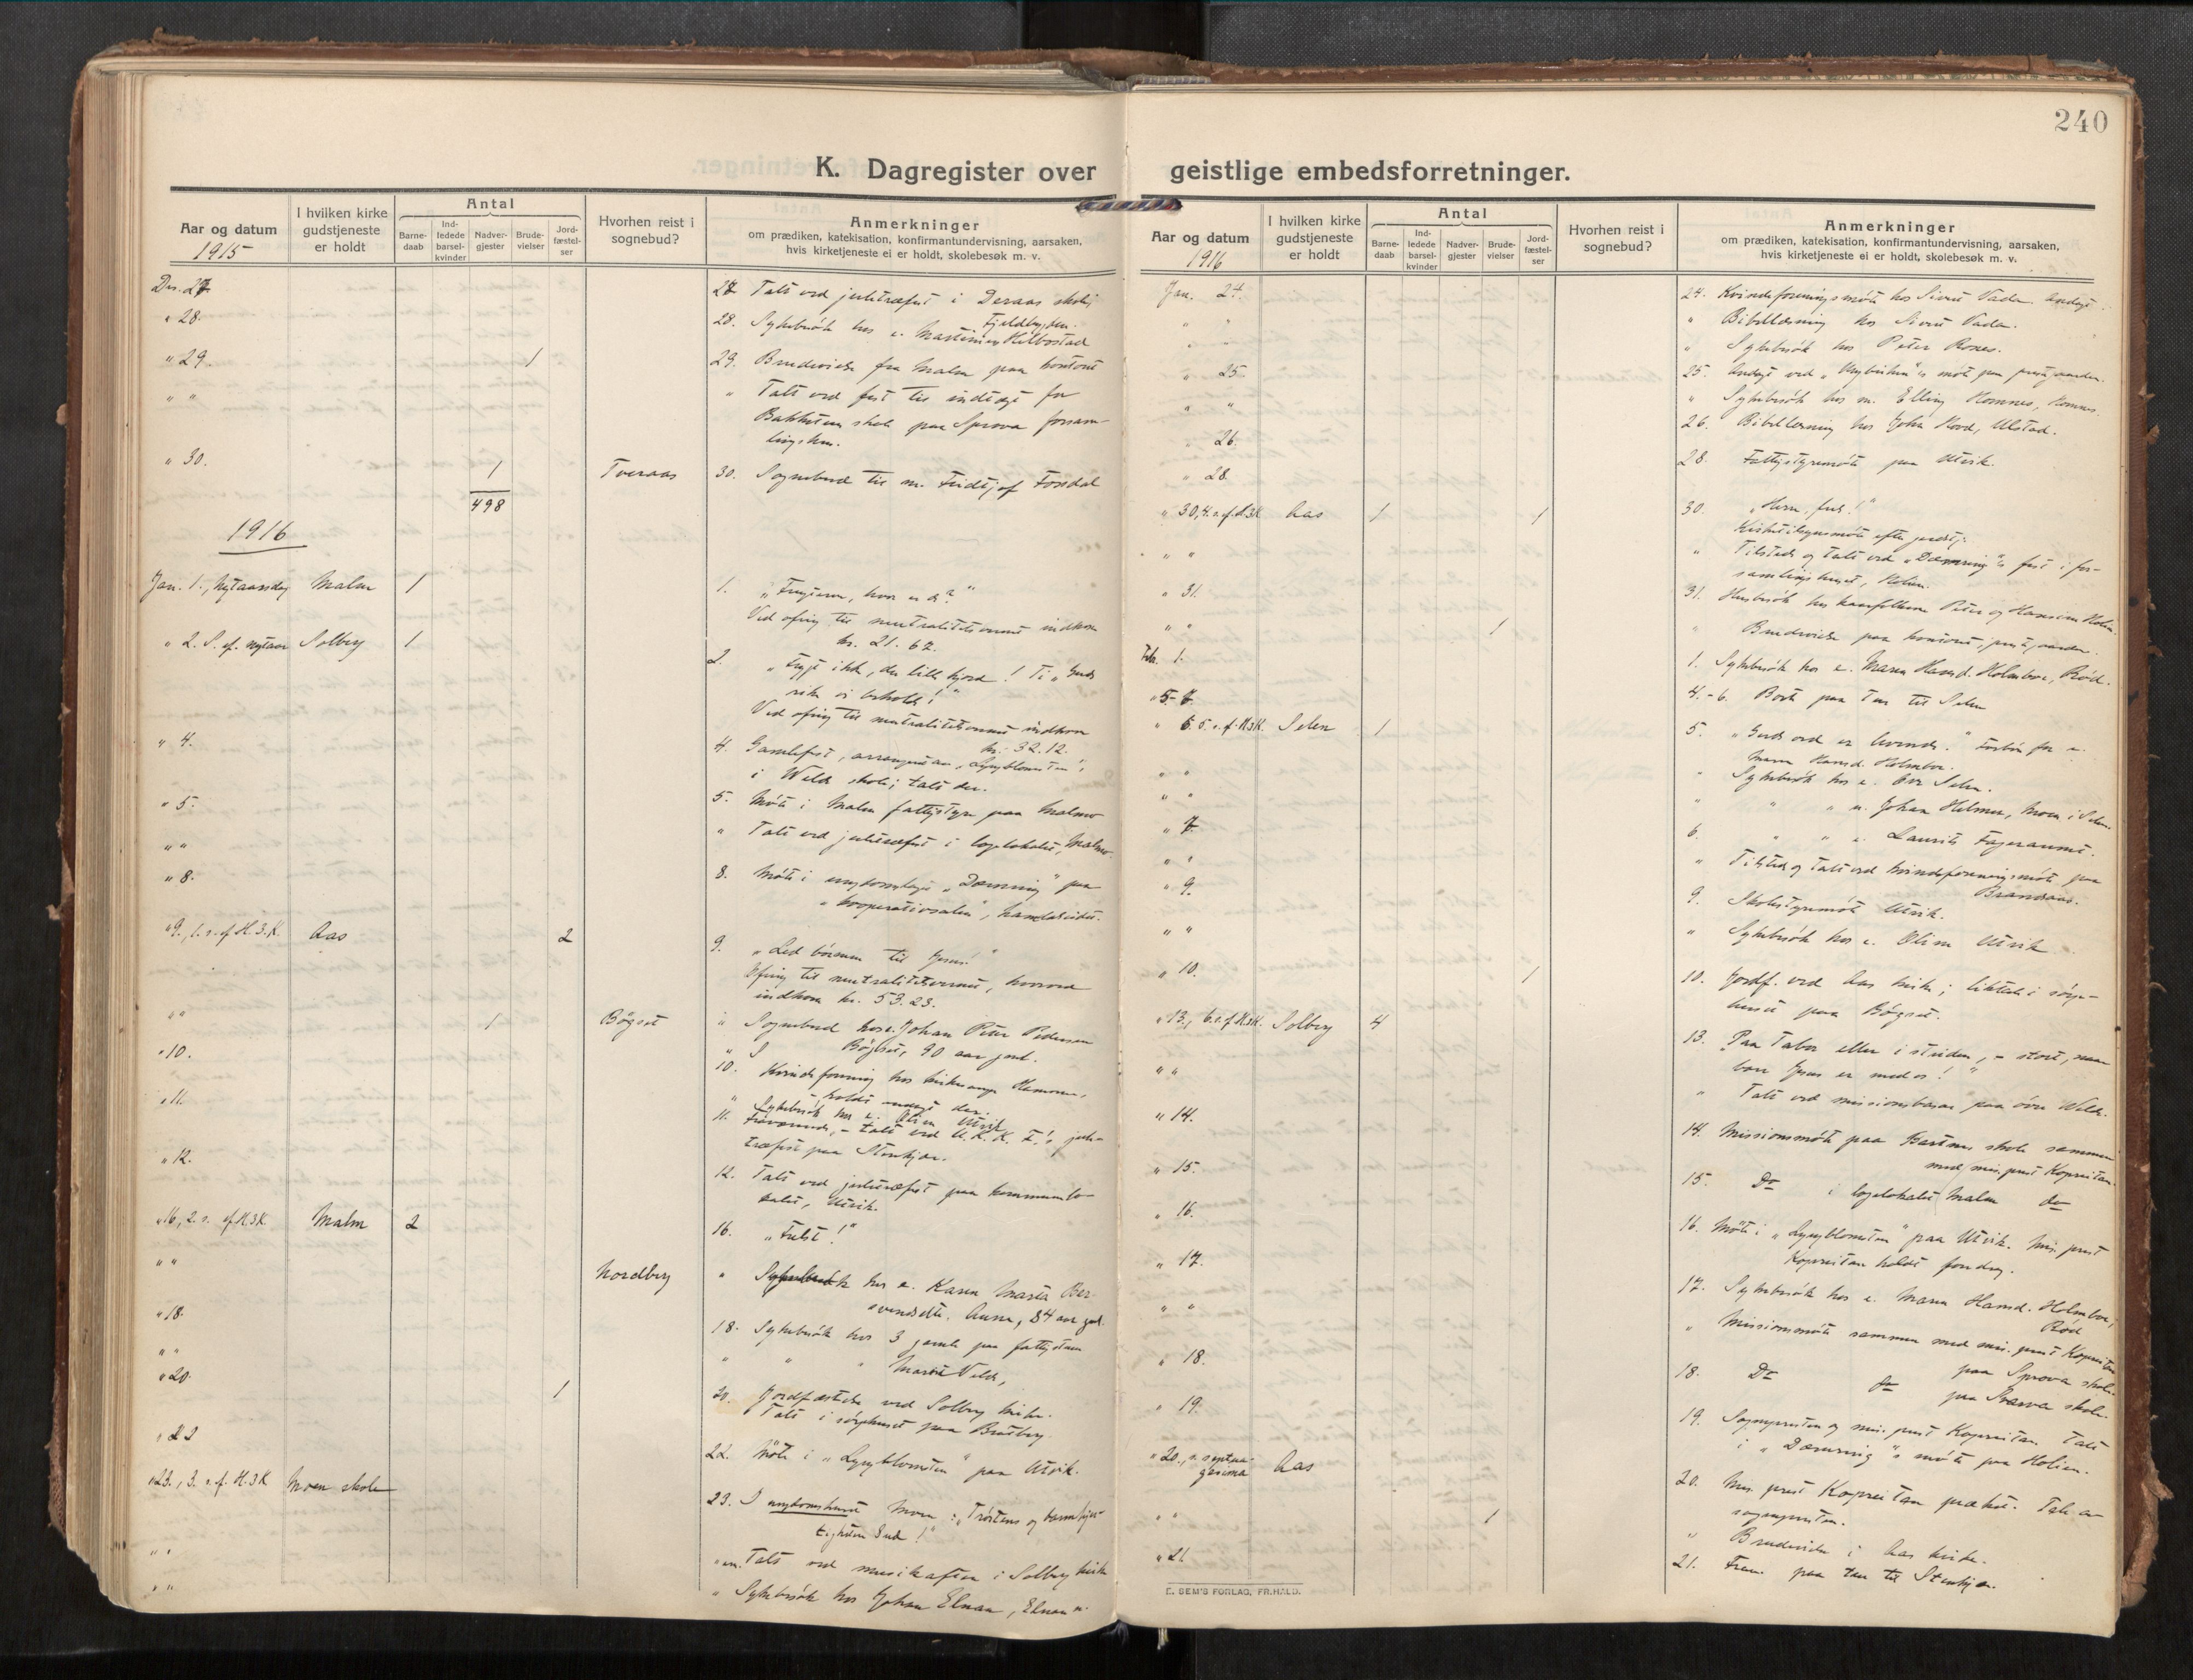 240
K. Dagregister over geistlige embedsforretninger.
Aar og datum
1915
I hvilken kirke gudstjeneste er holdt
Antal
Barnedaab
Indledede barselkvinder
Nadvergjester
Brudevielser
Jordfæstelser
Hvorhen reist i sognebud?
Anmerkninger
om prædiken, katekisation, konfirmantundervisning, aarsaken,
hvis kirketjeneste ei er holdt, skolebesøk m. v.
Des. 27 Tale ved juletræfest i Deraas skole
Fjeldbygden.
" 28. 28. Sykebesök hos e. Helbostad
" 29. 1 29. Brudevielse fra Malm paa kontoret
" " " Tale ved fest til indtægt for
skole paa Sprova forsam-
lingshus.
" 30. 1 Tveraas 30. Sognebud til m. Fridtjof Fossdal
498
1916
Jan. 1., Nytaarsdag Malm 1 1.
Ved ofring til neutralitetsvernet indkom
kr. 21.62.
" 2. S. ef. nytaar Solberg 1 2. "Frygt ikke, du lille hjord! Ti Guds
rike
Ved ofring til neutralitetsvernet indkom
kr. 32.12.
" 4. 4. Gamlefest, "Lyngblomsten",
i Welde skole; talte der.
" 5. 5. Möte i Malm fattigstyre paa Malmo
" " " Tale ved juletræfest i logelokalet, Malmo.
" 8. 8. Möte i ungdomslaget "Dæmring" paa
"kooperativsalen",
" 9., 1. s. ef. H. 3. K. Aas 2 9. "Led til Jesus!"
Ofring til neutralitetsvernet, hvorved
indkom kr. 53.23.
" " 1 Bögset " Sognebud hos e. Johan Peter Pedersen
Bögset, 90 aar gml.
" 10. 10. Kvindeforening hos
holdt andagt der.
" Sykebesök hos e. Oline Utvik
" 11. 11. Fraværende, - tale ved U.K.K.F.'s jule-
træfest paa Stenkjær.
" 12. 12. Tale ved juletræfest paa kommunelo-
kalet, Utvik.
" 16, 2. s. ef. H. 3 K Malm 2 16. "Frelst!"
" " Nordberg " Sykebesök hos e. Karen Maria Ber-
84 aar gml.
" 18. 18. Sykebesök hos 3 gamle paa fattigstuen
" " " " "
" 20. 1 20. Jordfæstelse ved Solberg kirke.
Tale i sörgehuset paa
" 22 22. Möte i "Lyngblomsten" paa Utvik.
" 23., 3. s. f. H. 3 K Moen skole 23. I ungdomshuset Moen: "Tröstens og
Gud!"
" " Tale ved musikaften i Solberg kirke
" " " Sykebesök hos Johan Elnan, Elnan
Aar og datum
1916
I hvilken kirke gudstjeneste er holdt
Antal
Barnedaab
Indledede barselkvinder
Nadvergjester
Brudevielser
Jordfæstelser
Hvorhen reist i sognebud?
Anmerkninger
om prædiken, katekisation, konfirmantundervisning, aarsaken,
hvis kirketjeneste ei er holdt, skolebesøk m. v.
Jan. 24. 24. Kvindeforeningsmöte hos Sivert Vada. Andagt.
" " " Bibellæsning hos Sivert Vada.
" " " Sykebesök hos Peter
" 25 25. Andagt ved möte paa prestgaarden.
" " " Sykebesök hos m. Elling Homnes, Homnes.
" 26. 26. Bibellæsning hos Johs Hovd, Ulstad.
" 28 28. Fattigstyremöte paa Utvik.
" 30, 4. s. ef. H. 3 K Aas 1 1 30.
Kirketilsynsmöte efter gudstj.
" " " Tilstede og tale ved "Dæmring"s fest i for-
samlingshuset, Holien.
" 31. 31. Husbesök hos Peter og Holm.
" " 1 " Brudevielse paa kontoret, prestgaarden.
Feb. 1. 1. Sykebesök hos e. Maren Hansd. Holmboe, Röd.
" 5- 7 4.-6. Bort paa tur til Selen
" 6. 5. s. f. H. 3 K. Selen 1 5. "Guds ord er levende." Forbön for e.
Maren Hansd. Holmboe.
" " " Sykebesök hos e. Selen.
" " " " " m. Johan Helmer, Moen i Selen.
" 7. 6. " " e. Laurits
" " " Tilsted og tale ved kvindeforeningsmöte paa
Brandaas.
" 9. 9. Skolestyremöte Utvik.
" " " Sykebesök hos e. Oline Utvik.
" 10. 1 10. Jordf. ved Aas kirke; liktale i sörge-
huset paa Bögset.
" 13., 6. s. f. H. 3 K. Solberg 4 13. "Paa Tabor eller i striden, - stort, naar
bare Jesus er med os!"
" " " Tale ved missionsbasar paa övre Welde.
" 14. 14. Missionsmöte paa Bartnes skole sammen
med mis. prest Kopreitan.
" 15. 15. Do i logelokalet Malm do
" 16. 16. Möte i "Lyngblomsten" paa Utvik. Mis. prest
Kopreitan holdt foredrag.
" 17. 17. Sykebesök hos e. Maren Hansd. Holmboe,
Röd
" " " Missionsmöte sammen med mis. prest Kopreitan
paa Sprova skole.
" 18. 18. Do do paa Svarva skole.
" 19. 19. Sognepresten og mis. prest Kopreitan tale
i "Dæmring"s möte paa Holien.
" 20., s. septua-
gesima Aas 20. Mis. prest Kopreitan præket. Tale av
sognepresten.
" " 1 " Brudevielse i Aas kirke.
" 21 21. Frav. paa tur til Stenkjær.
E. SEM'S FORLAG, FR.HALD.